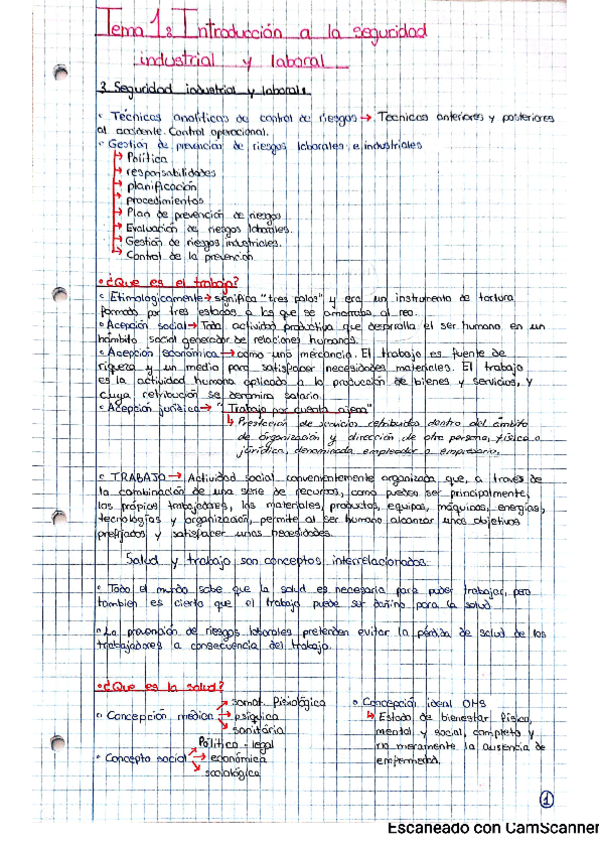 Tema 1: Introducción a la seguridad
industrial y laboral
3 Seguridad industrial y laboral:
• Técnicas analíticas de control de riesgos → Tecnicas anteriores y posteriores
al accidente. Control operacional.
• Gestión de prevención de riesgos laborales e industriales
↳ Política
↳ responsabilidades
↳ planificación
↳ procedimientos
↳ Plan de prevención de riesgos
↳ Evaluación de riesgos laborales.
↳ Gestión de riesgos industriales.
↳ Control de la prevención.
• ¿Que es el trabajo?
• Etimologicamente → significa "tres palos" y era un instrumento de tortura
formado por tres estacas a las que se amarraba al reo.
• Acepción social → Toda actividad productiva que desarrolla el ser humano en un
hámbito social generador de relaciones humanas.
• Acepción económica → como una mercancia. El trabajo es fuente de
riqueza y un medio para satisfacer necesidades materiales. El trabajo
es la actividad humana aplicada a la producción de bienes y servicios, y
cuya retribución se denomina salario.
• Acepción jurídica → "Trabajo por cuenta ajena"
↳ Prestación de servicios retribuidos dentro del ámbito
de organización y dirección de otra persona, física o
jurídica, denominada empleador o empresario.
• TRABAJO → Actividad social convenientemente organizada que, a traves de
la combinación de una serie de recursos, como pueden ser principalmente,
los própios trabajadores, los materiales, productos, equipos, máquinas, energías,
tecnologías y organización, permite al ser humano alcanzar unos objetivos
prefijados y satisfacer unas necesidades.
Salud y trabajo son conceptos interrelacionados
• Todo el mundo sabe que la salud es necesaria para poder trabajar, pero
tambien es cierto que el trabajo puede ser dañino para la salud
• La prevención de riesgos laborales pretenden evitar la pérdida de salud de los
trabajadores a consecuencia del trabajo.
• ¿Que es la salud?
• Concepción médica → somat. Fisiológica
→ psíquica
→ sanitária
• Concepto social → Político - legal
→ económica
→ sociológica
• Concepción ideal OMS
↳ Estado de bienestar físico,
mental y social, completo y
no meramente la ausencia de
enfermedad.
1
Escaneado con CamScanner